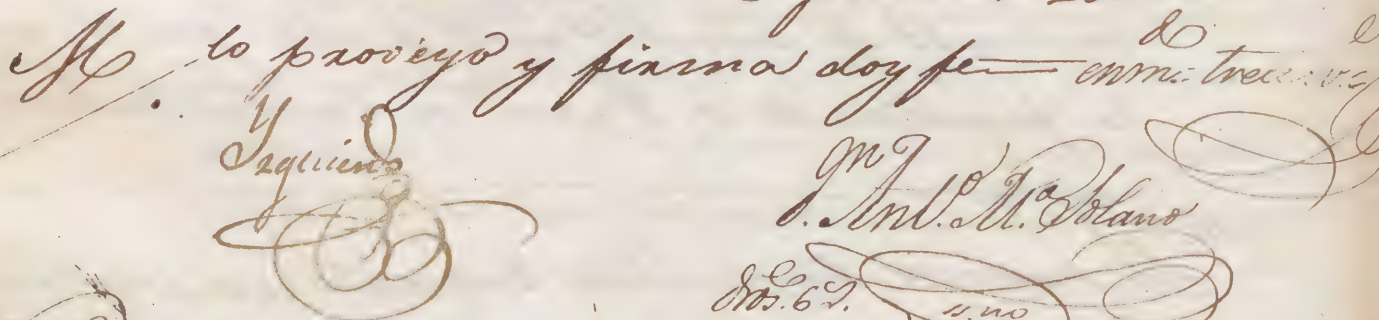 M. lo proveyo y firma doy fe — enm.do trece v.e
Yzquierdo
J.n Ant.o M.a Solano
dros. 6 r.s
ss.no